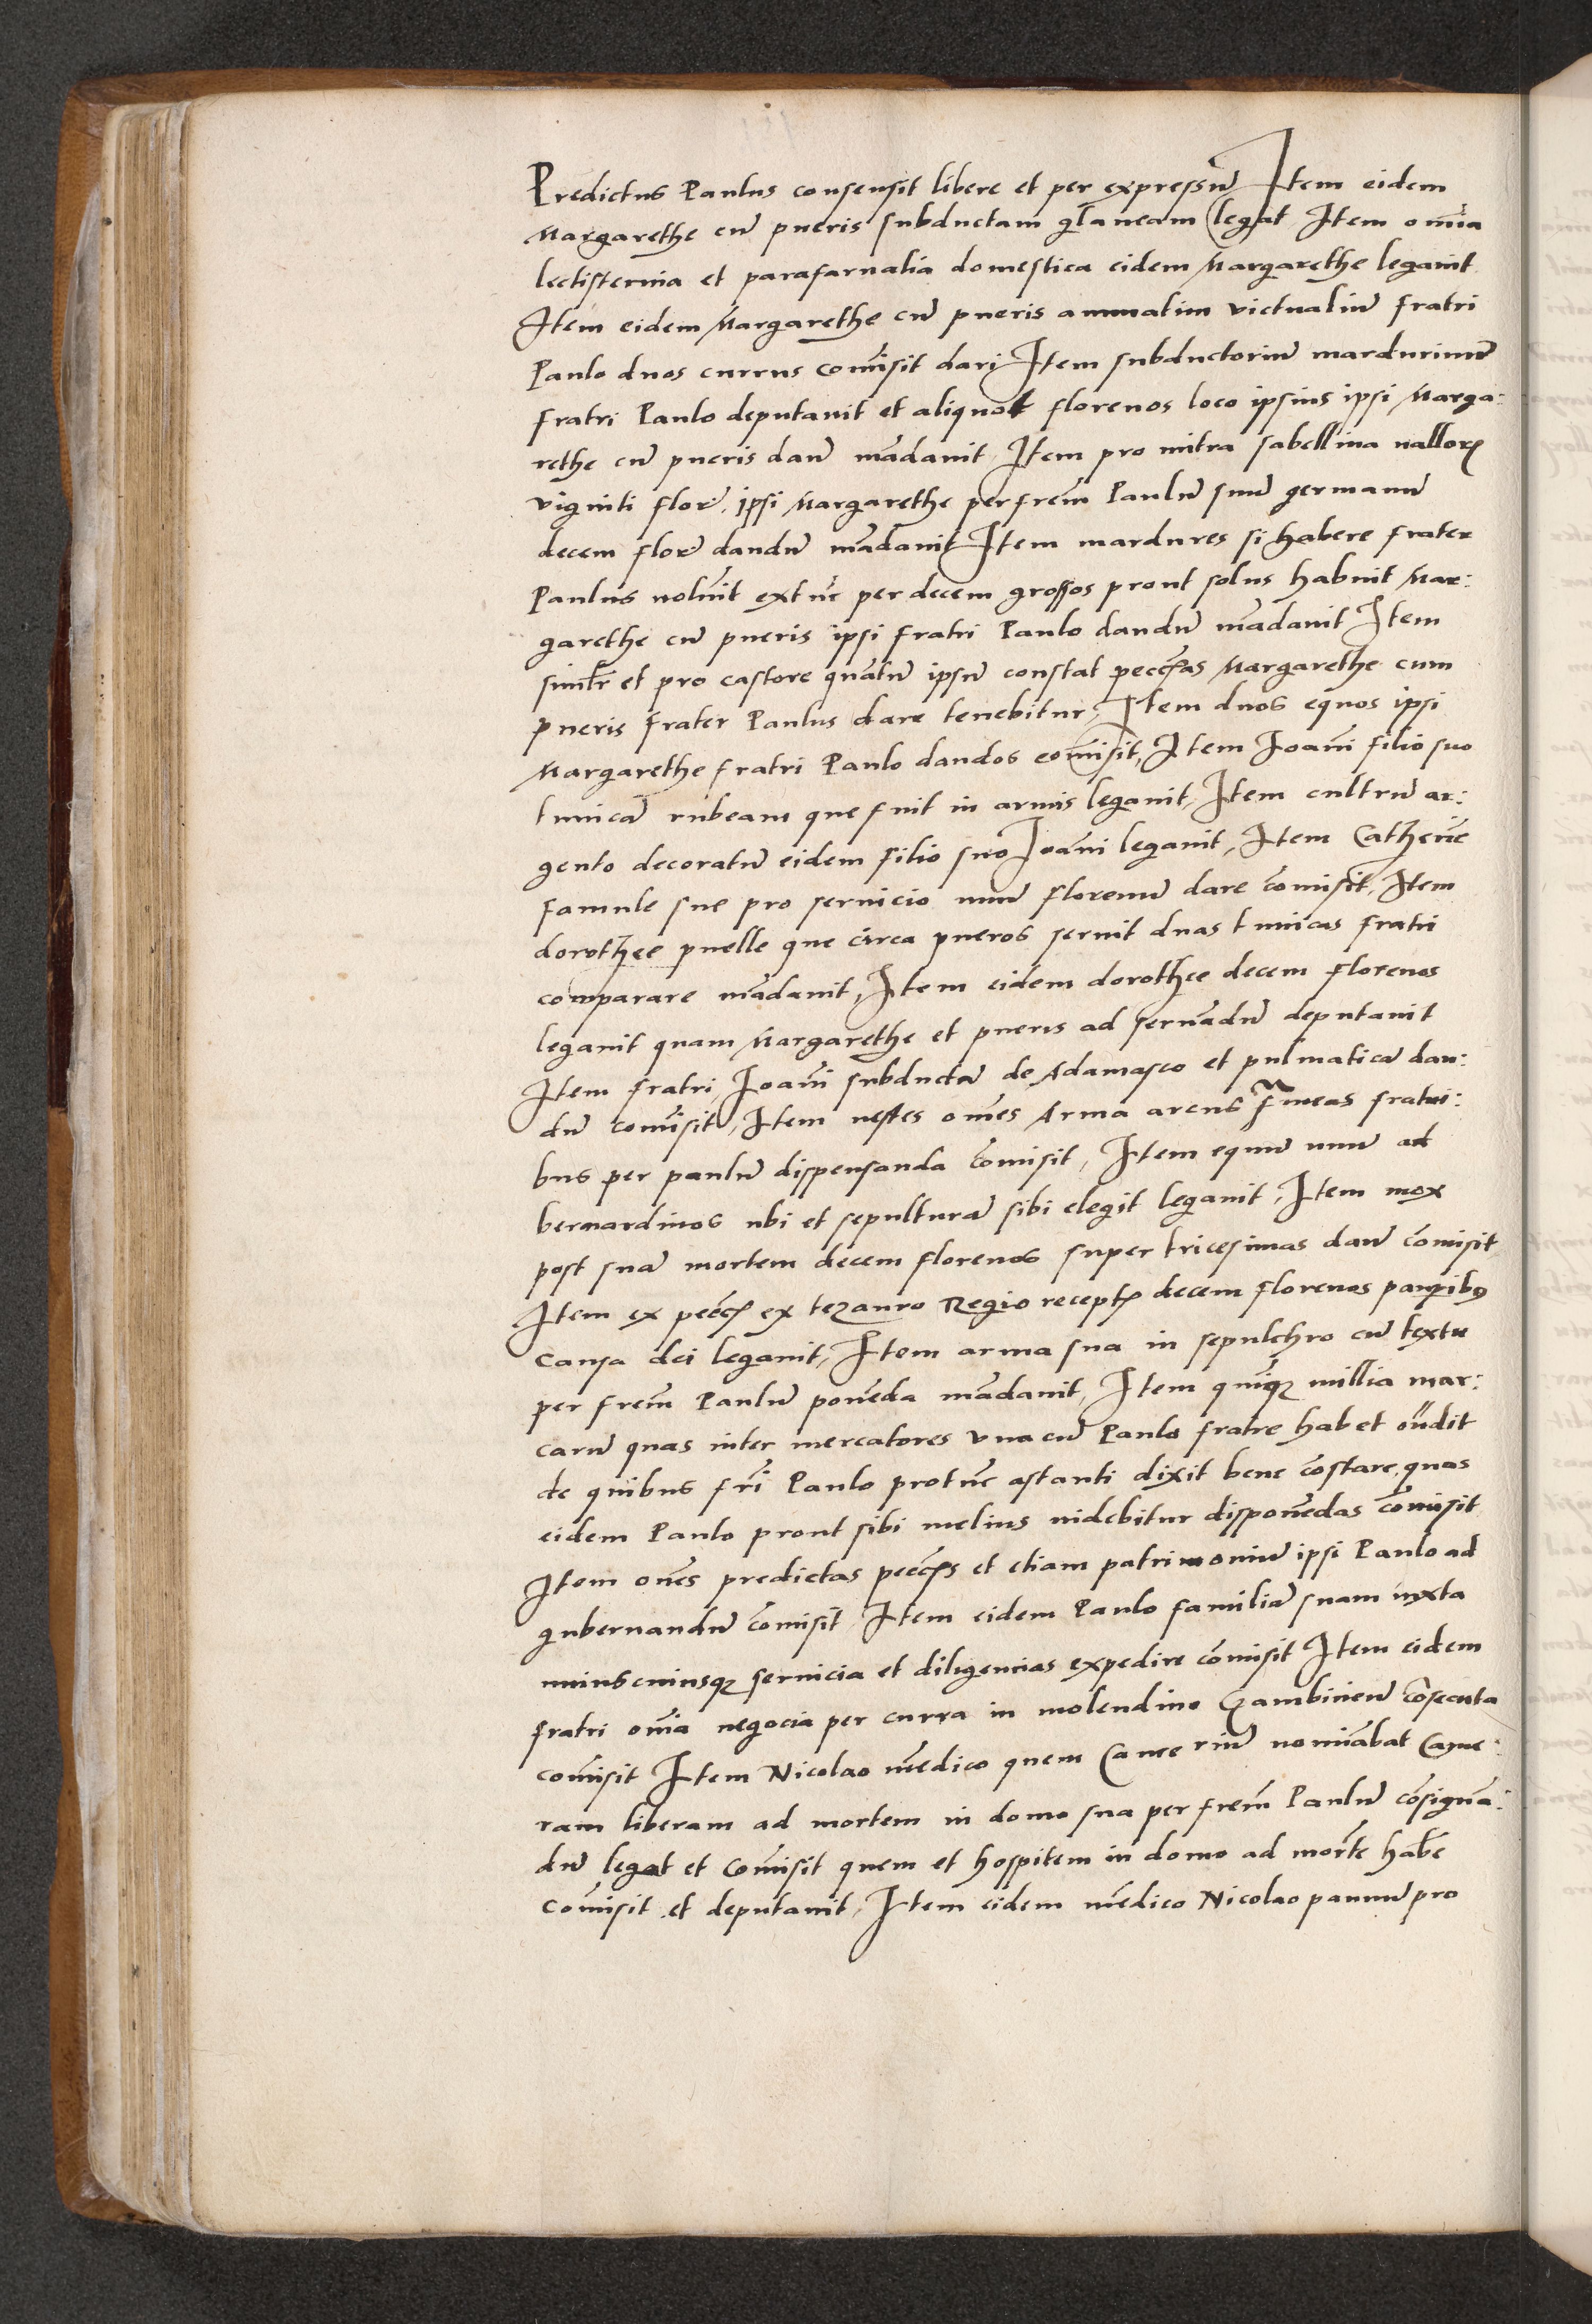 Predictus Paulus consensit libere et per expressū Item eidem
Margarethe cū pueris subductam glaneam legat Item oīa
lectisternia et parafarnalia domestica eidem Margarethe legauit
Item eidem Margarethe cū pueris annuatim victualiū fratri
Paulo duos currus com̄isit dari Item subductoriū mardurinū
fratri Paulo deputauit et aliquot florenos loco ipsius ipsi Marga:
rethe cū pueris dari mādauit Item pro mitra sabellina vallorꝭ
viginti flor. ipsi Margarethe per frem̄ Paulū suū germanū
decem flor dandū mādauit Item mardures si habere frater
Paulus voluit extūc per decem grossos prout solus habuit Mar:
garethe cū pueris ipsi fratri Paulo dandū mādauit Item
simlr̄ et pro castore quātū ipsū constat peccīas Margarethe cum
pueris frater Paulus dare tenebitur, Item duos equos ipsi
Margarethe fratri Paulo dandos com̄isit, Item Joāni filio suo
tunicā rubeam que fuit in armis legauit, Item cultrū ar:
gento decoratū eidem filio suo Joāni legauit, Item Catherīe
famule sue pro seruicio unū florenū dare com̄isit, Item
dorothee puelle que circa pueros seruit duas tunicas fratri
comparare mādauit, Item eidem dorothee decem florenos
legauit quam Margarethe et pueris ad seruādū deputauit
Item fratri Joāni subductā de Adamasco et pulmaticā dan:
dū com̄isit, Item vestes om̄es Arma arcus frameas fratri:
bus per paulū dispensanda com̄isit, Item equū unū ad
bernardinos ubi et sepulturā sibi elegit legauit, Item mox
post suā mortem decem florenos super tricesimas dari com̄isit
Item ex peccījs ex tezauro Regio receptꝭ decem florenos pauꝑibꝯ
causa dei legauit, Item arma sua in sepulchro cū textu
per frem̄ Paulū ponēda mādauit, Item quīqꝫ millia mar:
carū quas inter mercatores vna cū Paulo fratre habet
de quibus fri̅ Paulo protūc astanti dixit bene cōstare, quas
eidem Paulo prout sibi melius uidebitur disponēdas com̄isit
Item om̄es predictas peccījs et etiam patrimoniū ipsi Paulo ad
gubernandū com̄isit Item eidem Paulo familiā suam iuxta
uniuscuiusqꝫ seruicia et diligencias expedire com̄isit Item eidem
fratri oīa negocia per curra in molendino Gambinieū cōsecuta
com̄isit Item Nicolao medico quem Camerariū nomiābat Came:
ram liberam ad mortem in domo sua per frem̄ Paulū cōsignā:
dū legat et com̄isit quem et hospitem in domo ad mortē habē
com̄isit et deputauit, Item eidem medico Nicolao pannū pro